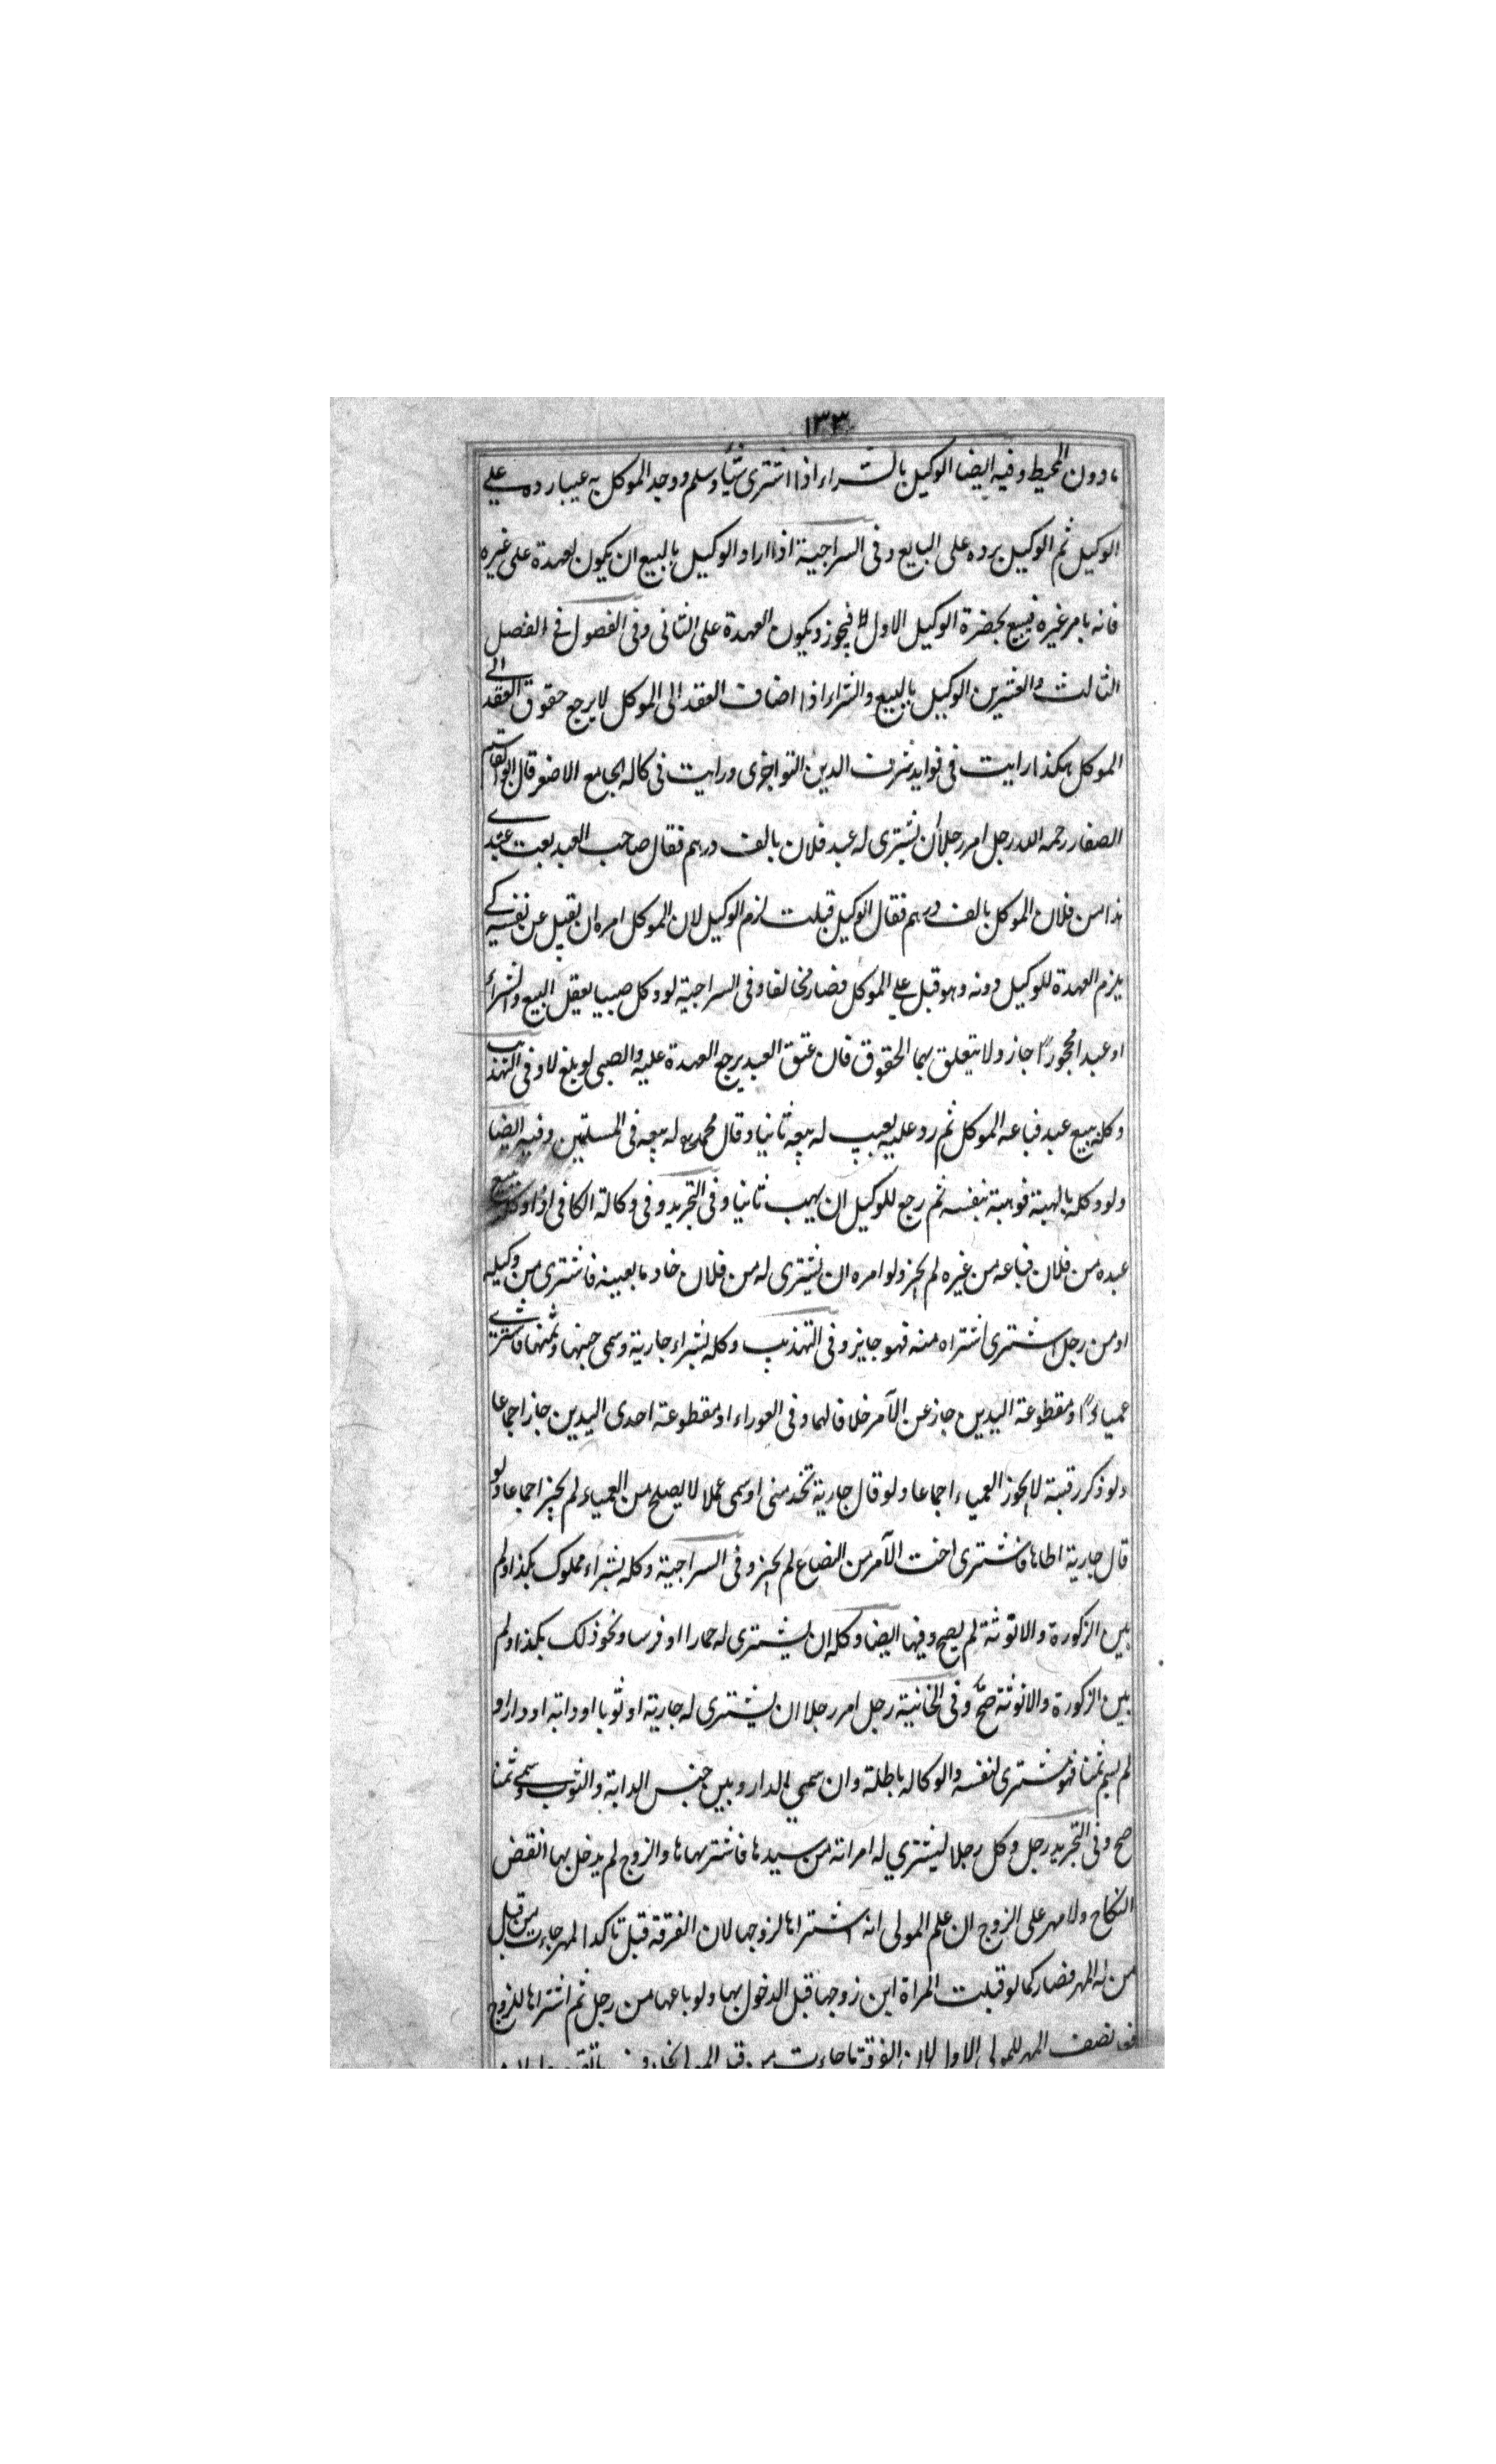 ١٣٣
مادون المحيط وفيه ايضا الوكيل بالشراء اذا اشترى شيأ وسلم ووجد الموكل به عيبا رده على
الوكيل ثم الوكيل يرده على البايع وفى السراجية اذا اراد الوكيل بالبيع ان يكون لعهدة على غيره
فانه يامر غيره فيبيع بحضرة الوكيل الاول فيجوز ويكون العهدة على الثانى وفى الفصول فى الفصل
الثالث والعشرين الوكيل بالبيع والشراء اذا اضاف العقد الى الموكل لا يرجع حقوق العقد الى
الموكل هكذا رايت فى فوايد شرف الدين ورايت فى كاله الجامع الاصغر قال ابو القاسم
الصفار رحمه الله رجل امر رجلا ان يشترى له عبد فلان بالف درهم فقال صاحب العبد بعت عبدى
هذا من فلان الموكل بالف درهم فقال الوكيل قبلت لزم الوكيل لان الموكل امره ان يقبل عن نفسه كى
يلزم العهدة للوكيل دونه وهو قبل على الموكل فصار مخالفا وفى السراجية لو وكل صبيا يعقل البيع والشراء
او عبدا محجورا جاز ولا يتعلق بهما الحقوق فان عتق العبد يرجع العهدة عليه والصبى لو بلغ لا وفى التهذيب
وكله ببيع عبد فباعه الموكل ثم رد عليه بعيب له بيعه ثانيا وقال محمد له بيعه فى المسلتين وفيه ايضا
ولو وكله بالهبة فوهبة بنفسه ثم رجع للوكيل ان يهب ثانيا وفى التجريد وفى وكالة الكافى اذا وكله ببيع
عبده من فلان فباعه من غيره لم يجز ولو امره ان يشترى له من فلان خادما بعينه فاشترى من وكيله
او من رجل اشترى اشتراه منه فهو جايز وفى التهذيب وكله بشراء جارية وسمى جنسها وثمنها فاشترى
عمياء او مقطوعة اليدين جاز عن الآمر خلافا لهما وفى العوراء او مقطوعة احدى اليدين جاز اجماعا
ولو ذكر رقبة لا يجوز العمياء اجماعا ولو قال جارية تخدمنى او سمى عملا لا يصلح من العمياء لم يجز اجماعا ولو
قال جارية اطاها فاشترى اخت الآمر من الرضاع لم يجز وفى السراجية وكله بشراء مملوك بكذا ولم
يبين الزكورة والانوثة لم يصح وفيها ايضا وكله ان يشترى له حمارا او فرسا ونحو ذلك بكذا ولم
يبين الزكورة والانوثة صح وفى الخانية رجل امر رجلا ان يشترى له جارية او ثوبا او دابة او دارا و
لم يسم ثمنا فهو مشترى لنفسه والوكاله باطلة وان سمى الدار وبين جنس الدابة والثوب وسمى ثمنا
صح وفى التجريد رجل وكل رجلا ليشترى له امراته من سيدها فاشتريها والزوج لم يدخل بها انقض
النكاح ولا مهر على الزوج ان علم المولى انه اشتراها لزوجها لان الفرقة قبل تاكد المهر جاءت من قبل
من له المهر فصار كما لو قبلت المراة ابن زوجها قبل الدخول بها ولو باعها من رجل ثم اشتراها للزوج
نصف المهر للمولى الاول لان الفرقة ما جاءت من قبل المولى